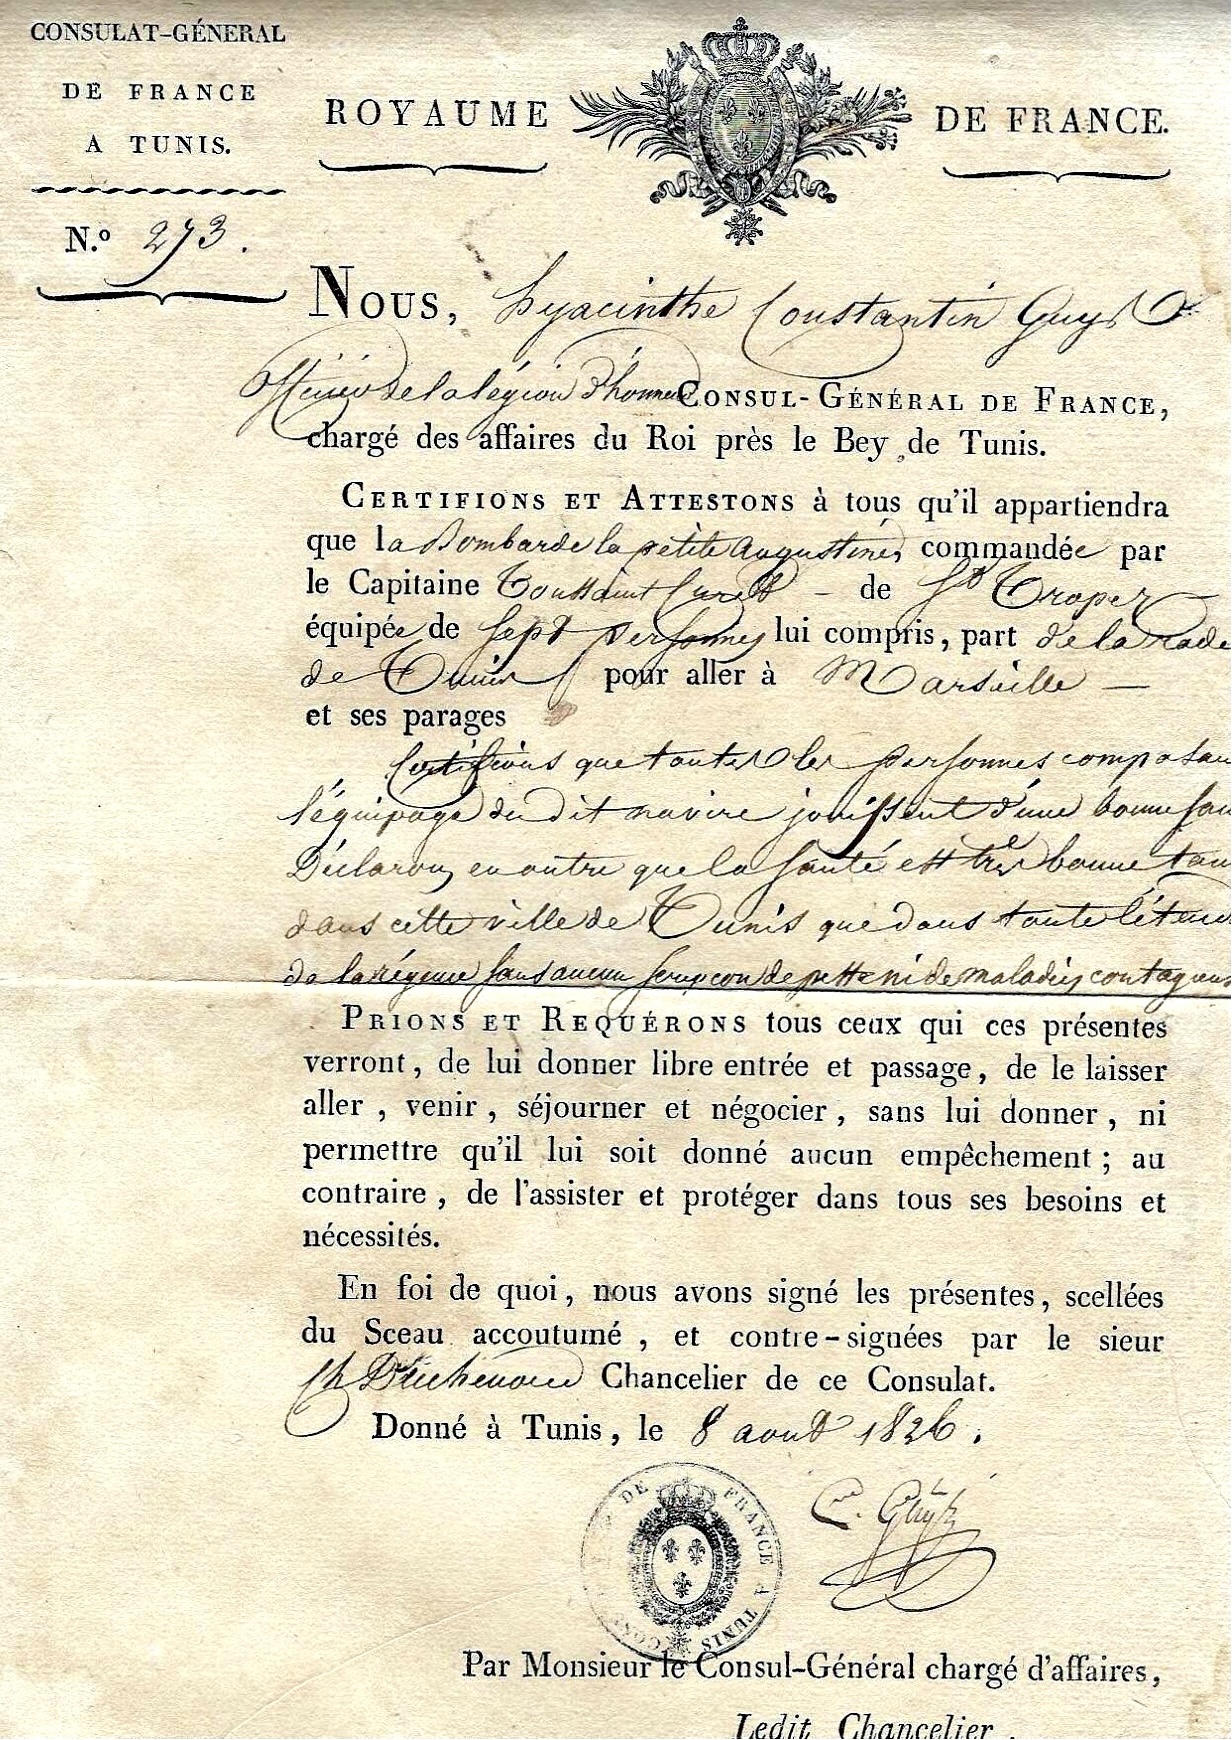 CONSULAT-GÉNERAL
DE FRANCE
A TUNIS.
N.º 273.
ROYAUME DE FRANCE.
Nous, hyacinthe Constantin Guys
officier de la légion d'honneur CONSUL-GÉNÉRAL DE FRANCE,
chargé des affaires du Roi près le Bey de Tunis.
CERTIFIONS ET ATTESTONS à tous qu'il appartiendra
que la Bombarde la petite Augustine, commandée par
le Capitaine Toussaint Curet - de St Tropez -
équipée de sept personnes lui compris, part de la rade
de Tunis pour aller à Marseille -
et ses parages
Certifions que toutes les personnes composan
l'équipage du dit navire jouissent d'une bonne san
Déclarons en outre que la santé est très bonne tan
dans cette ville de Tunis que dans toute l'étendu
de la régence sans aucun soupçon de peste ni de maladies contagieus
PRIONS ET REQUÉRONS tous ceux qui ces présentes
verront, de lui donner libre entrée et passage, de le laisser
aller, venir, séjourner et négocier, sans lui donner, ni
permettre qu'il lui soit donné aucun empêchement; au
contraire, de l'assister et protéger dans tous ses besoins et
nécessités.
En foi de quoi, nous avons signé les présentes, scellées
du Sceau accoutumé, et contre-signées par le sieur
Ch Chancelier de ce Consulat.
Donné à Tunis, le 8 aout 1826.
DE FRANCE A TUNIS
C. Guys
Par Monsieur le Consul-Général chargé d'affaires,
Ledit Chancelier.